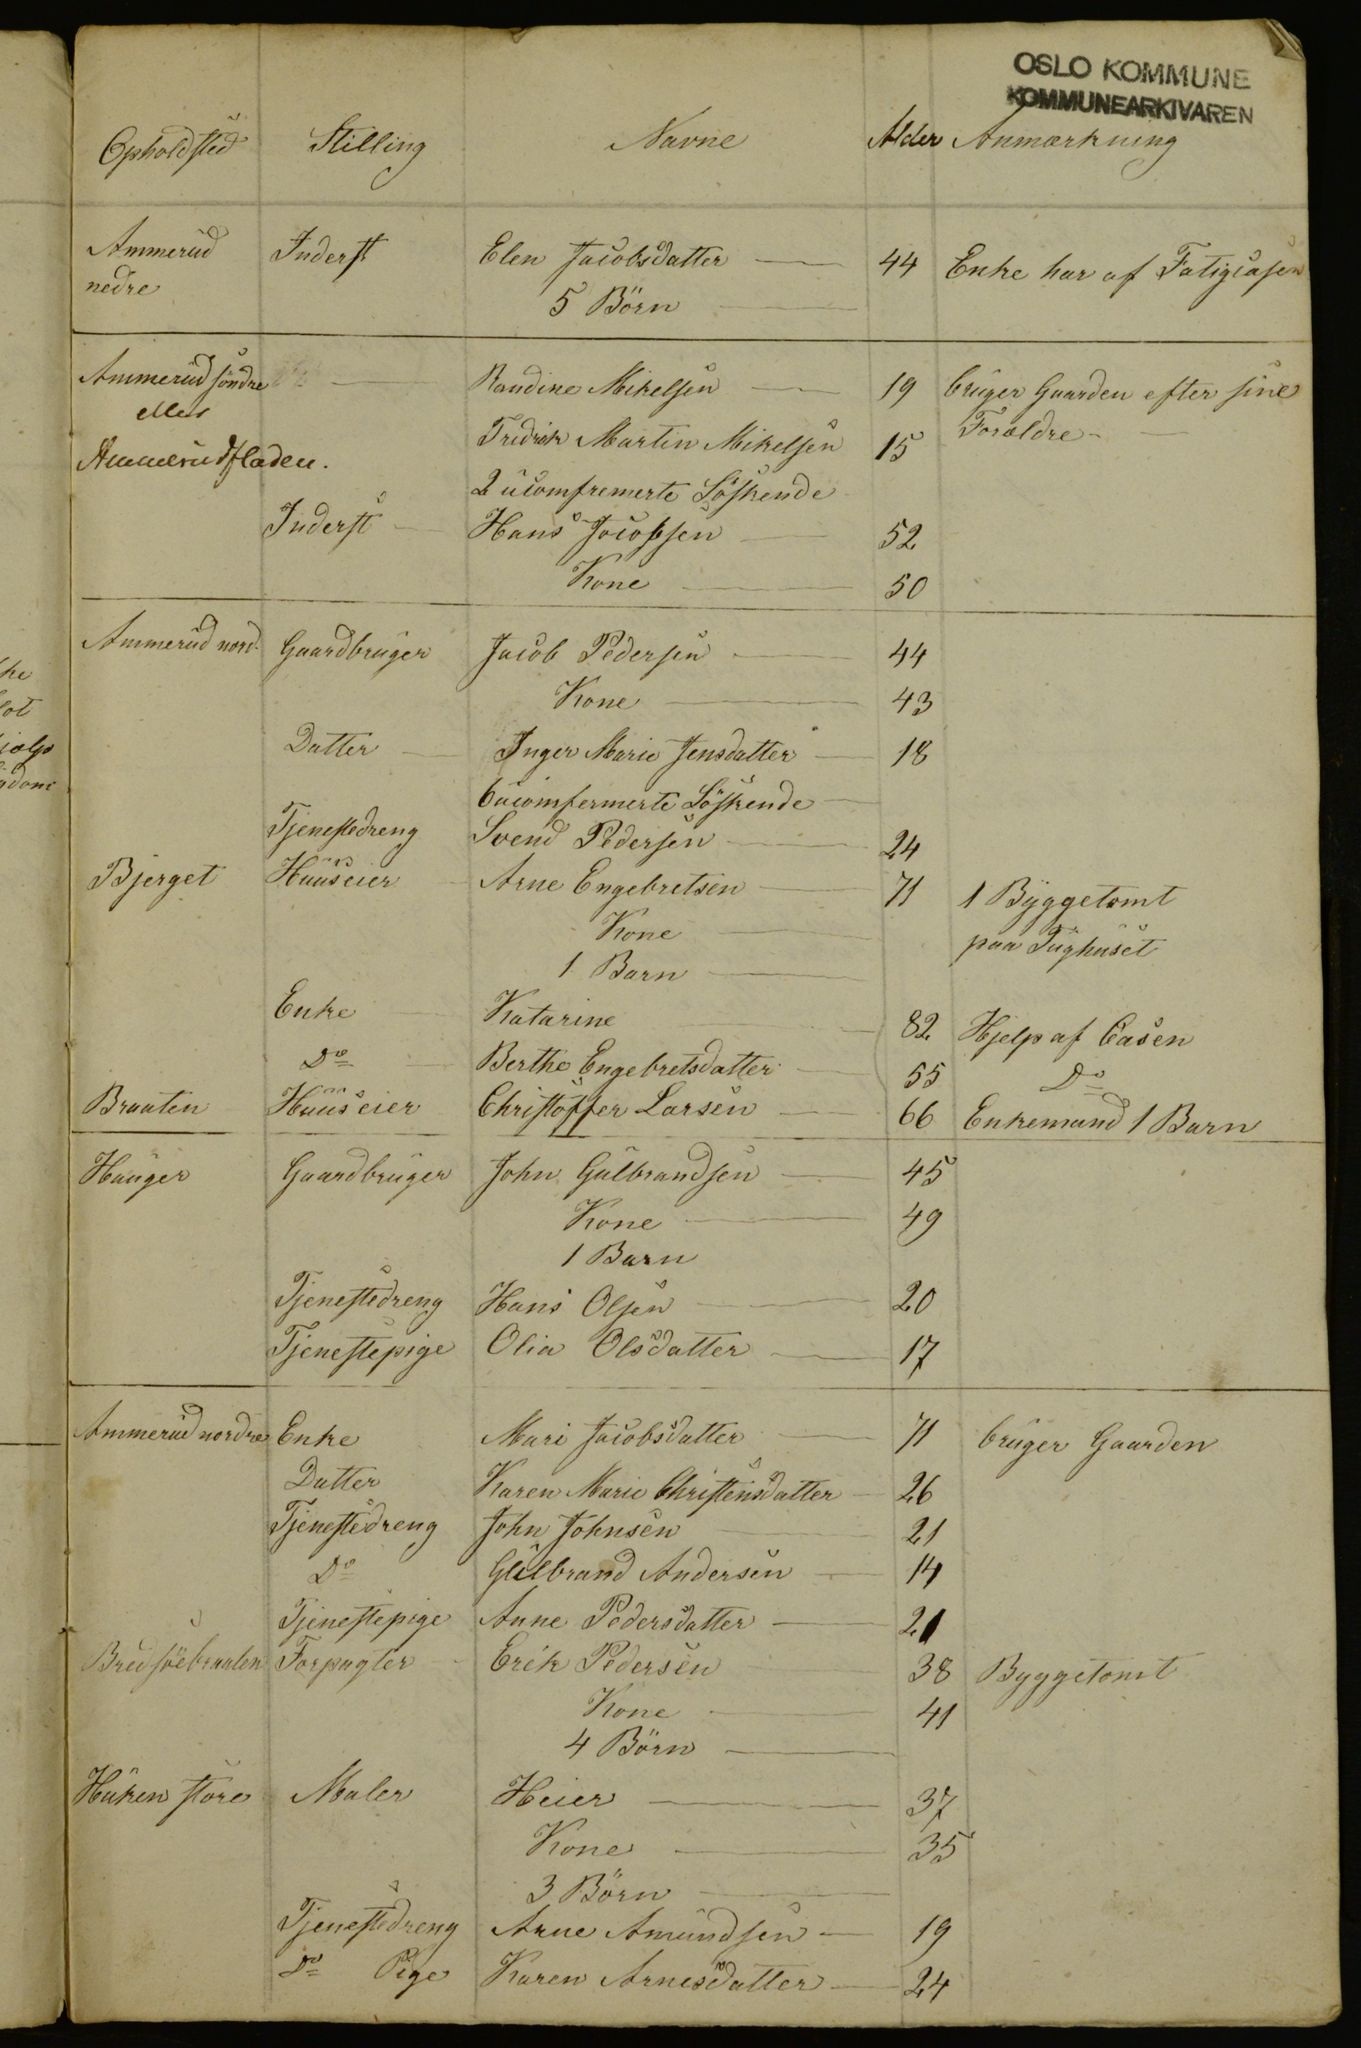 OSLO KOMMUNE
KOMMUNEARKIVAREN
Opholdsted Stilling Navne Alder Anmærkning
Ammerud Inderst Elen Jacobsdatter 44 Enke har af Fatigcasen
nedre 5 Börn
Ammerud söndre Randine Mikelsen 19 bruger Gaarden efter sine
eller Fredrik Martin Mikelsen 15 Forældre
Ammerudfladen. 2 ucomfremerte Söskende
Inderst Hans Jacobsen 52
Kone 50
Ammerud nord. Gaardbruger Jacob Pedersen 44
Kone 43
Datter Inger Marie Jensdatter 18
6 ucomfermerte Söskende
Tjenestedreng Svend Pedersen 24
Bjerget Huuseier Arne Engebretsen 71 1 Byggetomt
Kone paa Tughuset
1 Barn
Enke Katarine 82 Hjelp af Casen
Do Berthe Engebretsdatter 55 Do
Braaten Huuseier Christoffer Larsen 66 Enkemand 1 Barn
Hauger Gaardbruger John Gulbrandsen 45
Kone 49
1 Barn
Tjenestedreng Hans Olsen 20
Tjenestepige Olia Olsdatter 17
Ammerud nordre Enke Mari Jacobsdatter 71 bruger Gaarden
Datter Karen Marie Christensdatter 26
Tjenestedreng John Johnsen 21
Do Gulbrand Andersen 14
Tjenestepige Anne Pedersdatter 21
Bredsöebraaten Forpagter Erik Pedersen 38 Byggetomt
Kone 41
4 Börn
Huken store Maler Heier 37
Kone 35
3 Börn
Tjenestedreng Arne Amundsen 19
Do Pige Karen Arnesdatter 24